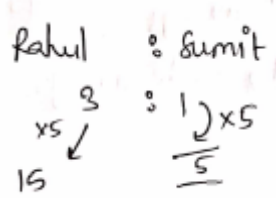 Rahul : Sumit
3 : 1
x5 x5
15 5